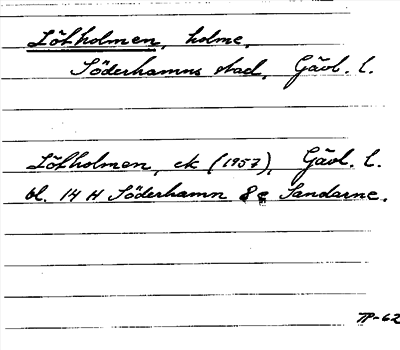 Lötholmen, holme.
Söderhamns stad, Gävl. l.
Lötholmen, ek (1957), Gävl. l.
bl. 14 H Söderhamn 8 e Sandarne.
TP-62